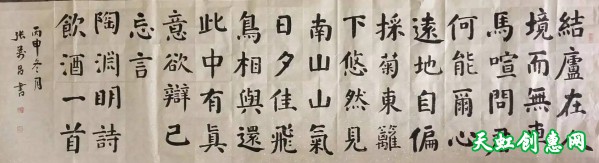 結廬在
境而無車
馬喧問
何能爾心
遠地自偏
採菊東籬
下悠然見
南山山氣
日夕佳飛
鳥相與還
此中有真
意欲辯已
忘言
陶淵明詩
飲酒一首
丙申冬月
書
天虹创惠网